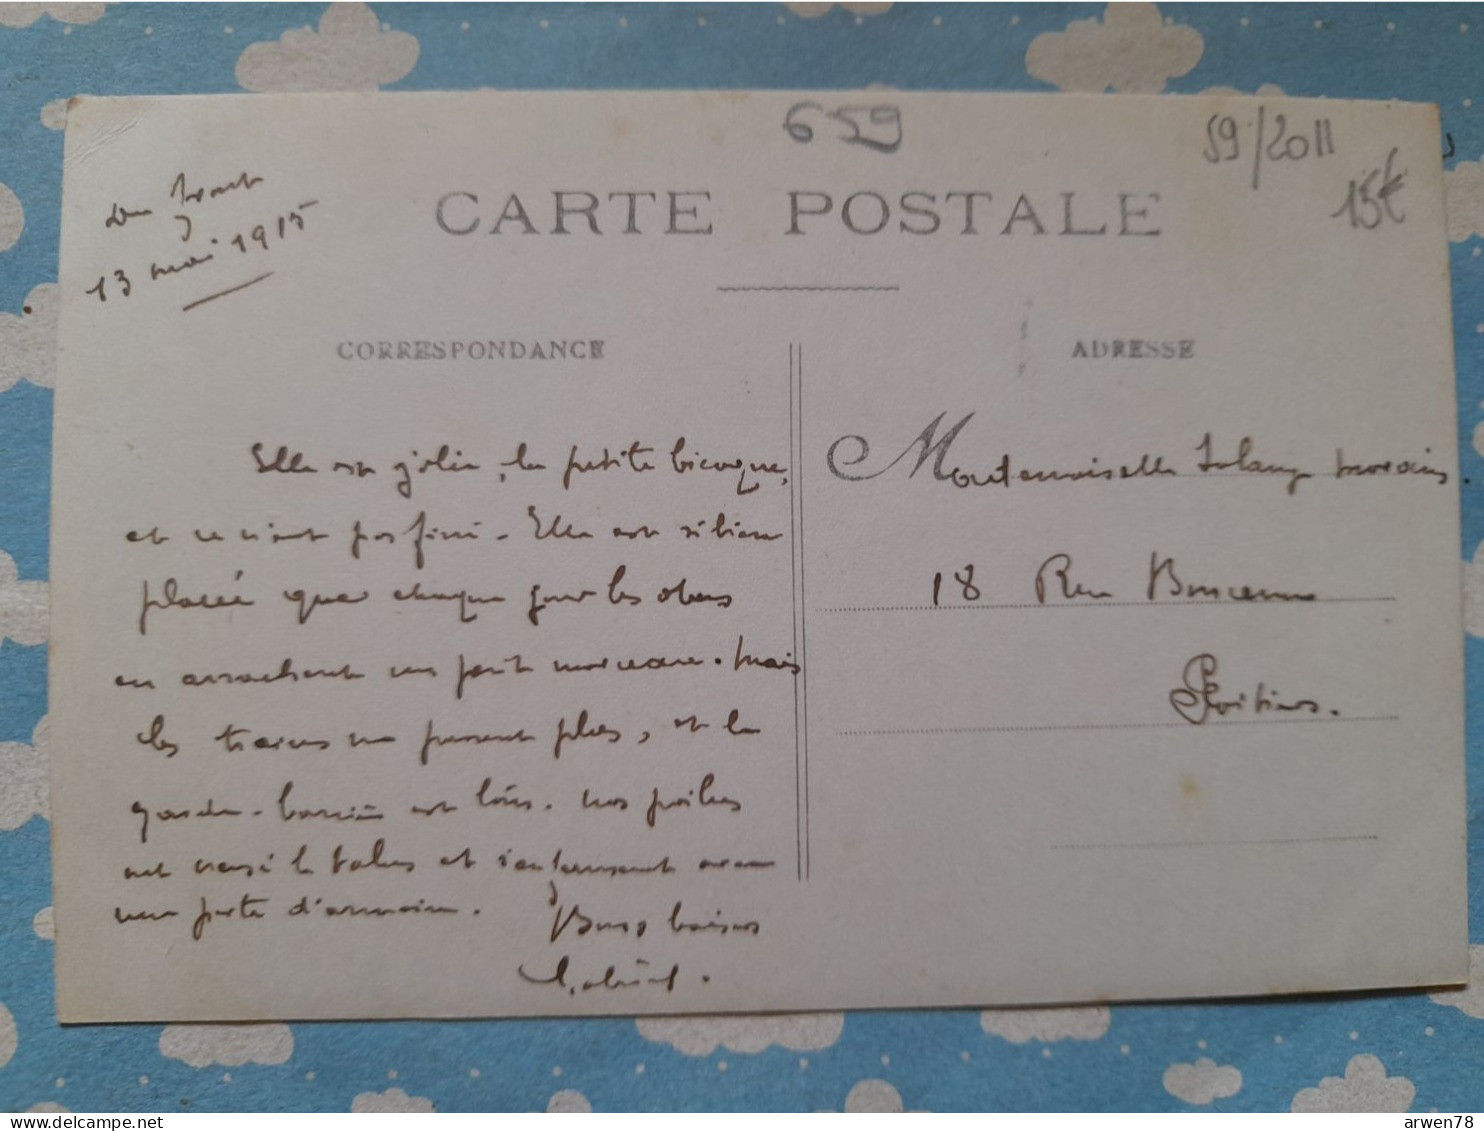 659
59/2011
15€
Du front
13 mai 1915
CARTE POSTALE
CORRESPONDANCE
ADRESSE
Elle est jolie, la petite bicoque,
et ce n'est pas fini. Elle est si bien
placée que chaque jour les obus
en arrachent un petit morceau. Mais
les trains ne passent plus, et la
garde-barrière est loin. Nos poilus
ont creusé le talus et s'enferment avec
une porte d'armoire.
Bons baisers
Gabriel.
Mademoiselle Solange
18 Rue Boncenne
Poitiers.
arwen78